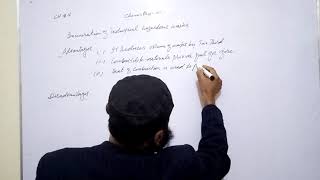 CH # 4 Chemistry
Incineration of industrial hazardous wastes
Advantages (i) It Reduces volume of waste by Two Third
(ii) Combustible materials provide fuel for fire
(iii) Heat of combustion is used to
Disadvantages